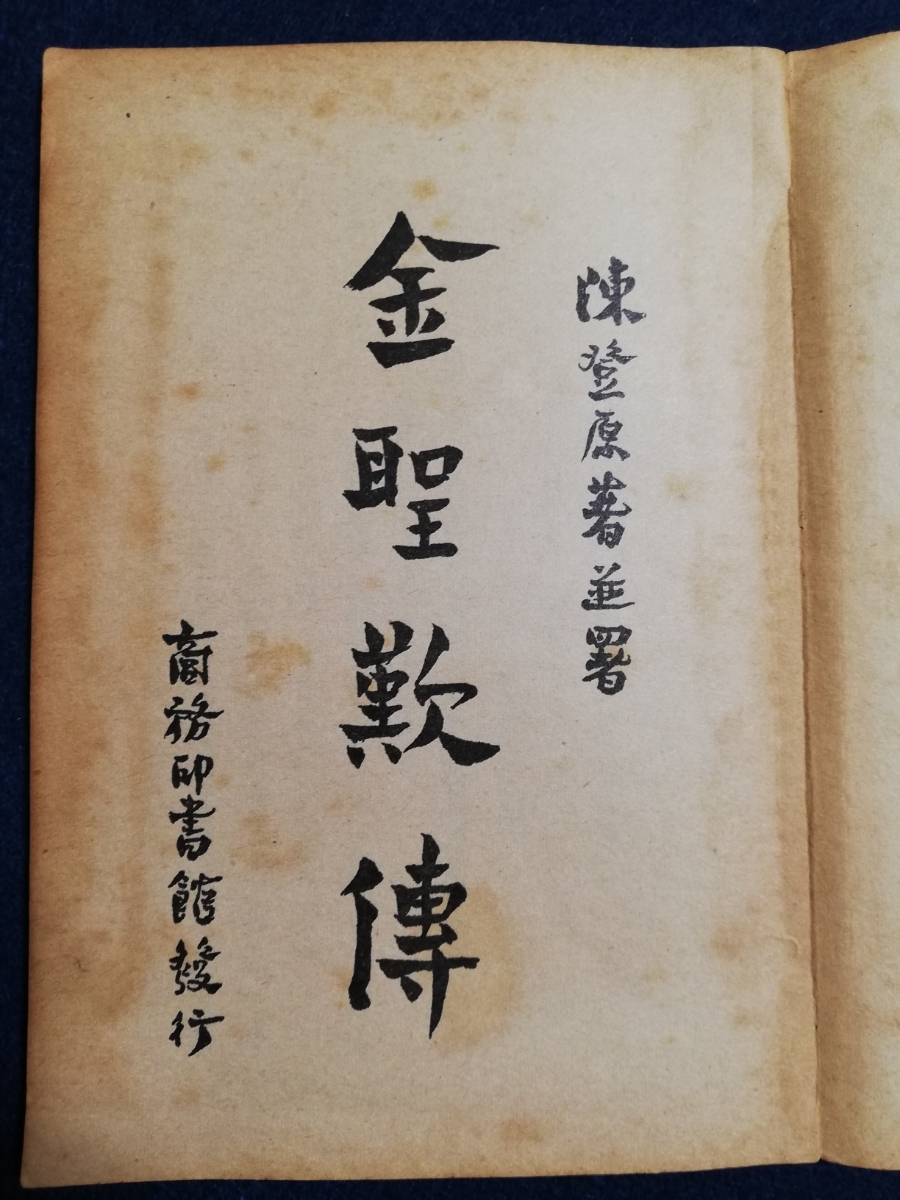 陳登原著並署
金聖歎傳
商務印書館發行